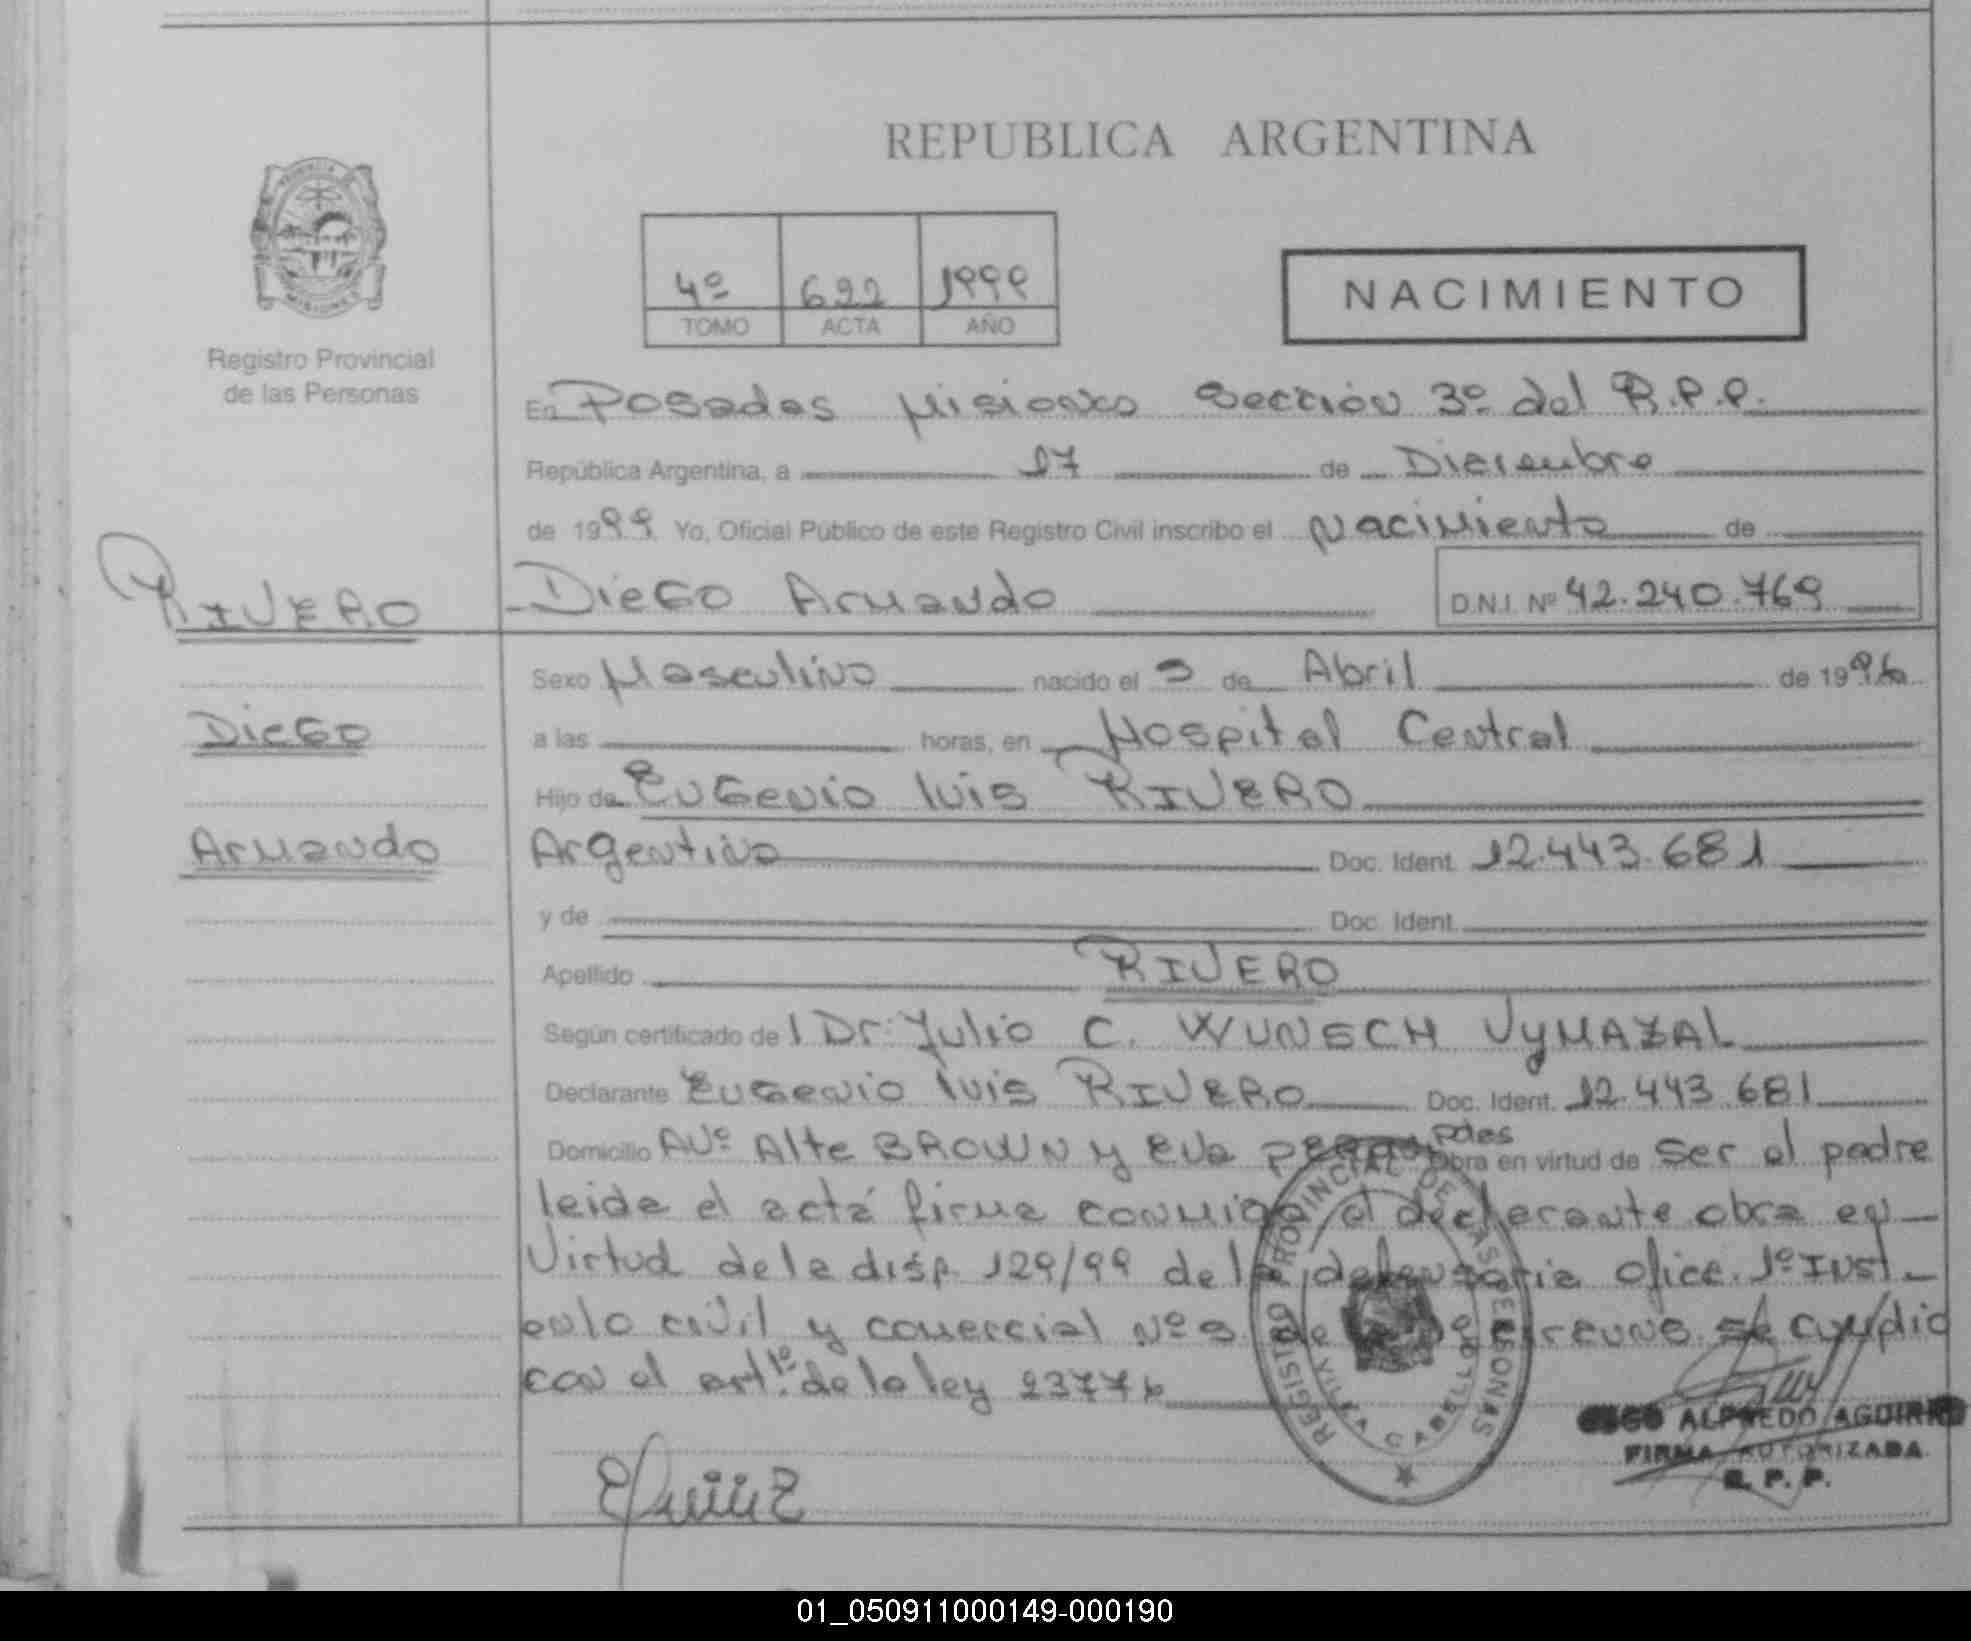 REPUBLICA ARGENTINA
4º 622 1999
TOMO ACTA AÑO
NACIMIENTO
Registro Provincial
de las Personas
En Posadas Misiones Sección 3º del R.P.P.
República Argentina, a 17 de Diciembre
de 1999. Yo, Oficial Público de este Registro Civil inscribo el Nacimiento de
RIVERO Diego Armando D.N.I. Nº 42.240.769
Sexo Masculino nacido el de Abril de 1996
Diego a las horas, en Hospital Central
Hijo de Eugenio Luis RIVERO
Armando Argentino Doc. Ident. 12.443.681
y de Doc. Ident.
Apellido RIVERO
Según certificado de l Dr. Julio C. WUNSCH VyMAZAL
Declarante Eugenio Luis RIVERO Doc. Ident. 12.443.681
Domicilio AVº Alte BROWN y Eva Pdas Obra en virtud de ser el padre
leida el acta firma conmigo el declarante obra en
Virtud de la disp. 129/99 de la defensoria ofice. 1º Inst
en lo civil y comercial Nº se cumplio
con el art. 1º de la ley 23776
REGISTRO PROVINCIAL DE LAS PERSONAS
VILLA CABELLO
ALFREDO AGUIRRE
FIRMA AUTORIZADA
R. P. P.
01_050911000149-000190